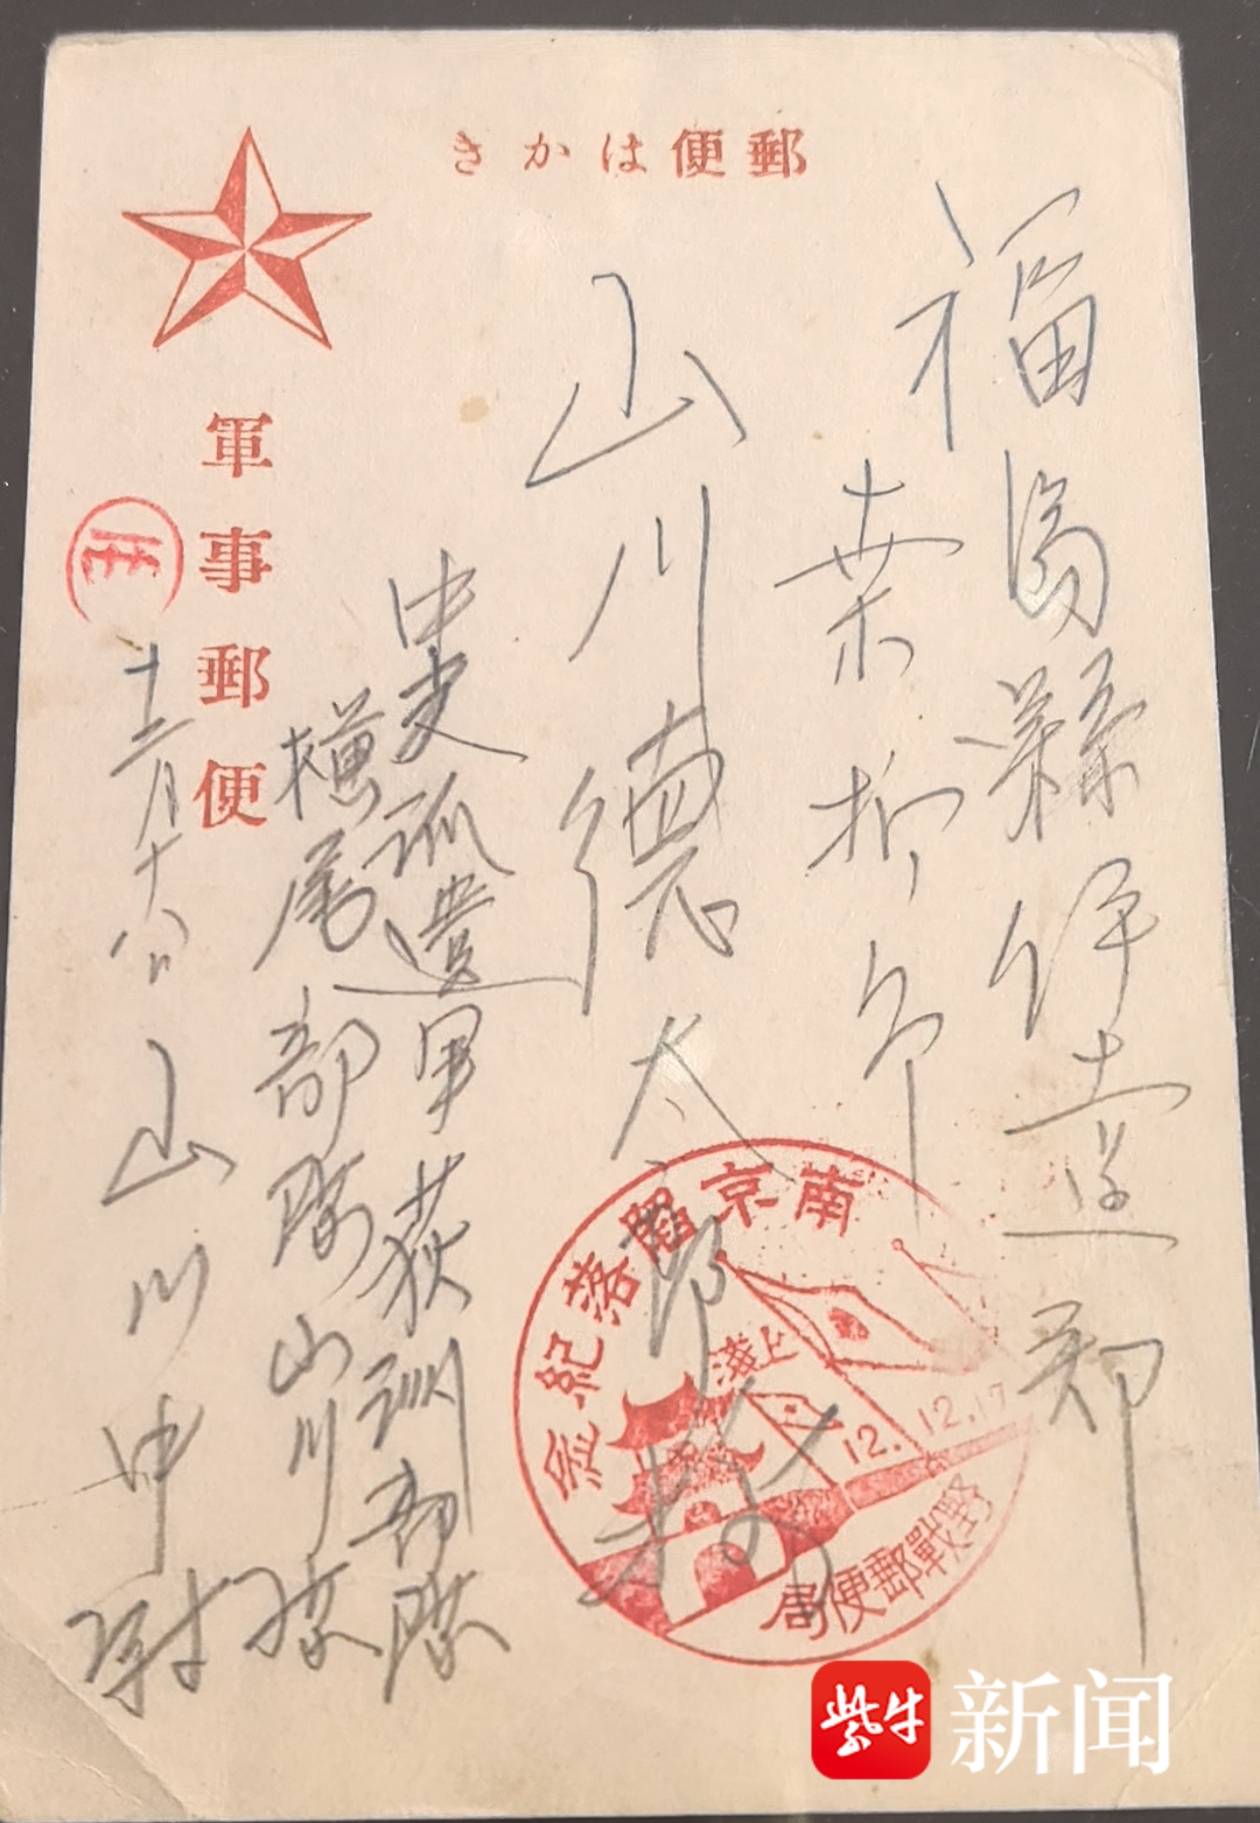 郵便はかき
軍事郵便
福島縣伊達郡
桑折
山川德太郎様
中支派遣軍荻洲部隊
横尾部隊山川隊
十二月十八日 山川中尉
南京陷落紀念
上海
12.12.17
野戰郵便局
紫牛新闻